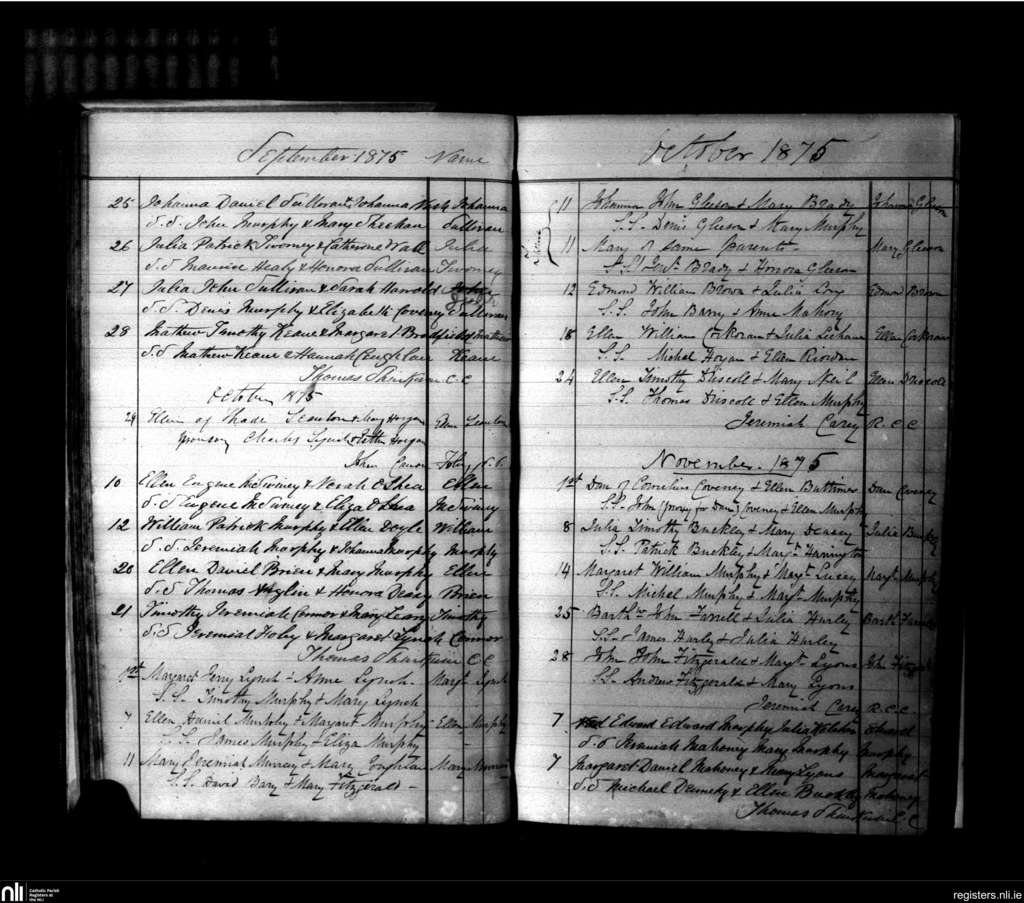 September 1875 Name
25 Johanna Daniel Sullivan & Johanna Johanna
S.S. John Murphy & Mary Sheehan Sullivan
26 Julia Patrick Twomey & Catherine Wall Julia
S.S. Maurice Healy & Honora Sullivan Twomey
27 Julia John Sullivan & Sarah Harold
S.S. Denis Murphy & Elizabeth Coveney Sullivan
28 Mathew Timothy Keane & Margaret Mathew
S.S. Mathew Keane & Hannah Coughlan Keane
Thomas C.C.
October 1875
29 Ellen of Thade Scanlon & Mary Horgan Ellen Scanlon
Charles Lynch & Horgan
John Canon Foley P.P.
10 Ellen Eugene McSwiney & Norah O Shea Ellen
S.S. Eugene McSwiney & Eliza O Shea McSwiney
12 William Patrick Murphy & Ellen Doyle William
S.S. Jeremiah Murphy & Johanna Murphy Murphy
20 Ellen Daniel Brien & Mary Murphy Ellen
S.S. Thomas & Honora Deasy Brien
21 Timothy Jeremiah Connor & Mary Leary Timothy
S.S. Jeremiah Foley & Margaret Lynch Connor
Thomas C.C
1st Margaret Jerry Lynch & Anne Lynch Margt Lynch
S.S. Timothy Murphy & Mary Lynch
7 Ellen Daniel Murphy & Margaret Murphy Ellen Murphy
S.S. James Murphy & Eliza Murphy
11 Mary Jeremiah Murray & Mary Coughlan Mary Murray
S.S. David Bary & Mary Fitzgerald
October 1875
11 Johanna John Gleeson & Mary Brady Johanna Gleeson
S.S. Denis Gleeson & Mary Murphy
11 Mary of same parents Mary Gleeson
S.S. Brady & Honora Gleeson
12 Edmond William Brown & Julia Edmond Brown
S.S. John Barry & Anne Mahony
18 Ellen William Corkoran & Julia Leehane Ellen Corkoran
S.S. Michel Hogan & Ellen Riordan
24 Ellen Timothy Driscoll & Mary Neil Ellen Driscoll
S.S. Thomas Driscoll & Ellen Murphy
Jeremiah Carey R.C.C
November 1875
1st Dan of Cornelius Coveney & Ellen Buttimer Dan Coveney
S.S. John (proxy for Dan) Coveney & Ellen Murphy
8 Julia Timothy Buckley & Mary Deasey Julia Buckley
S.S. Patrick Buckley & Margt Harrington
14 Margaret William Murphy & Margt Lucey Margt Murphy
S.S. Michel Murphy & Margt Murphy
25 Barthw John Farrell & Julia Hurley Barth Farrell
S.S. James Hurley & Julia Hurley
28 John John Fitzgerald & Margt Lyons John Fitzg
S.S. Andrew Fitzgerald & Mary Lyons
Jeremiah Carey R.C.C.
7 Edward Edward Murphy Julia Edward
S.S Jeremiah Mahoney Mary Murphy Murphy
7 Margaret Daniel Mahoney & Mary Lyons Margaret
S.S Michael & Ellen Buckley Mahoney
Thomas C.C
nli Catholic Parish Registers at the NLI
registers.nli.ie